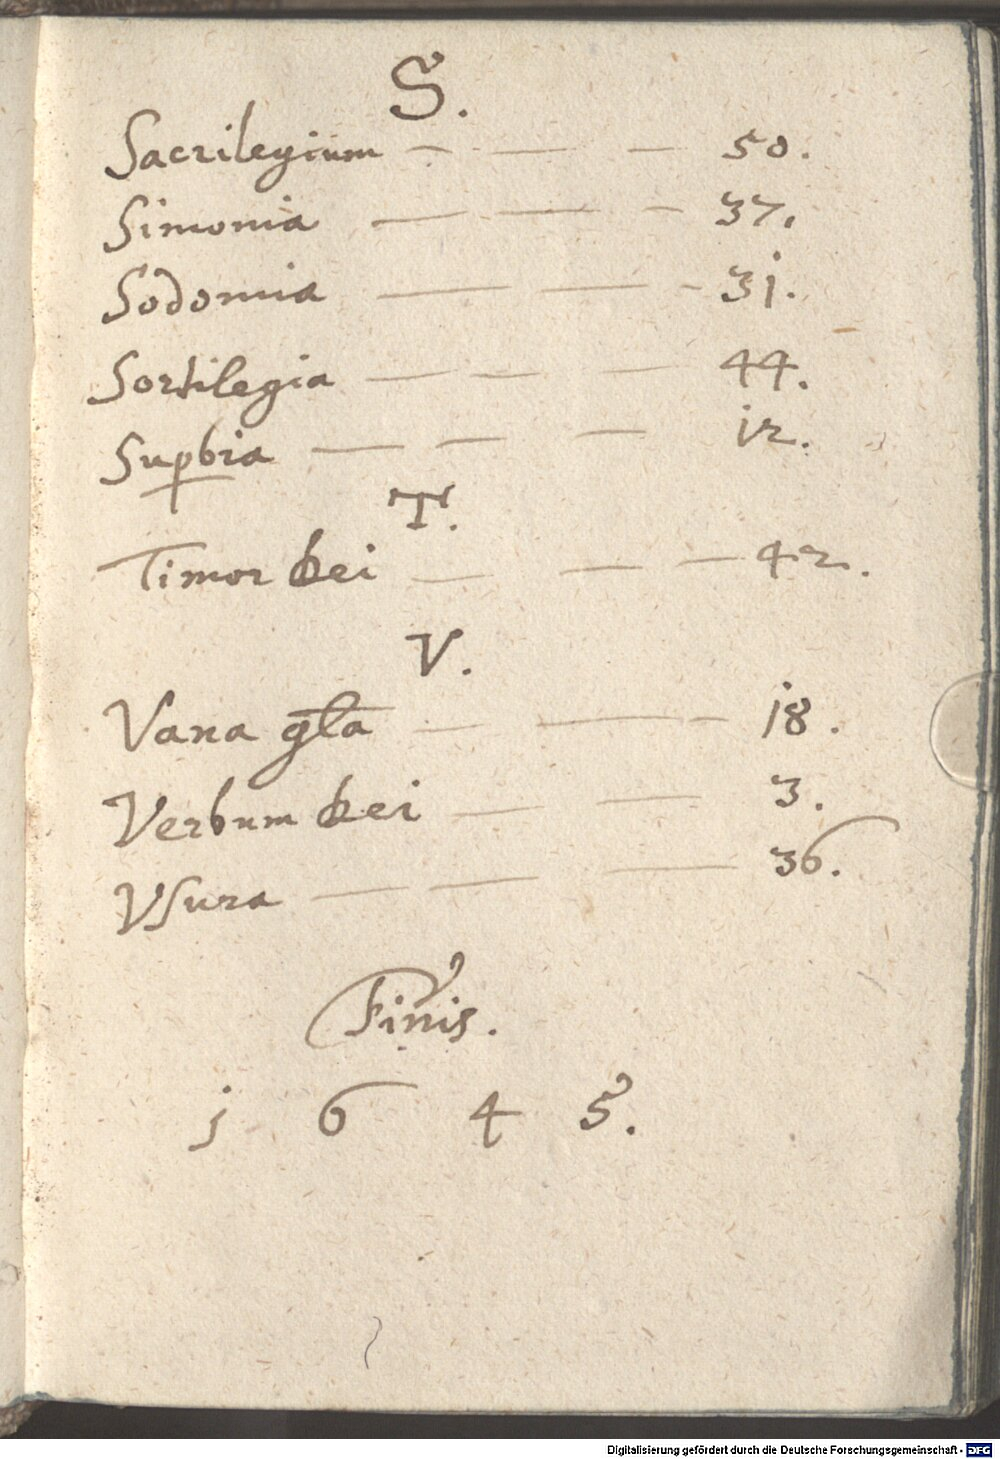 S.
Sacrilegium — — — 50.
Simonia — — — 37.
Sodomia — — — 3j.
Sortilegia — — — 44.
Supbia — — — i2.
T.
Timor Dei — — — 42.
V.
Vana gła — — — j8.
Verbum Dei — — 3.
VSura — — — 36.
Finis.
j 6 4 5.
Digitalisierung gefördert durch die Deutsche Forschungsgemeinschaft - DFG